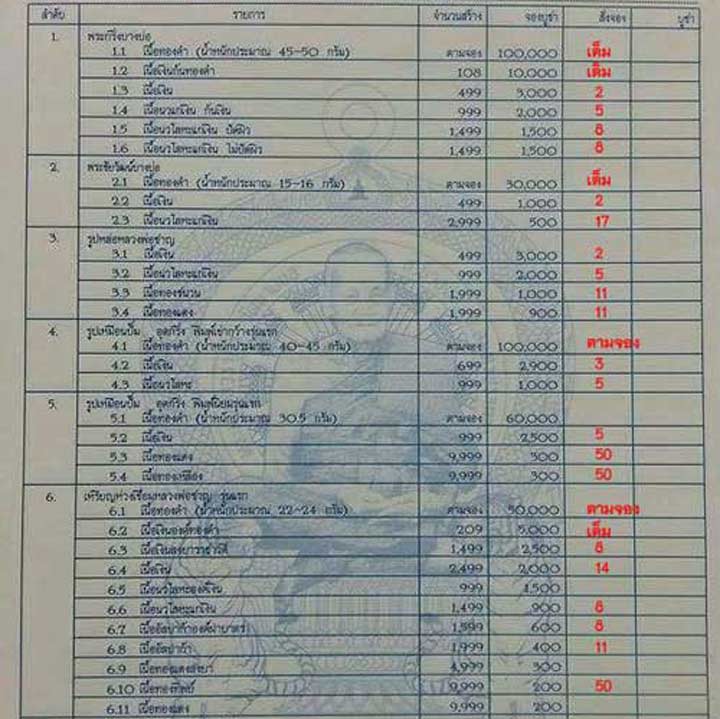 ลำดับ รายการ จำนวนสร้าง จองบูชา สั่งจอง บูชา
1. พระกริ่งบางบ่อ
1.1 เนื้อทองคำ (น้ำหนักประมาณ 45-50 กรัม) ตามจอง 100,000 เต็ม
1.2 เนื้อเงินก้นทองคำ 108 10,000 เต็ม
1.3 เนื้อเงิน 499 3,000 2
1.4 เนื้อนวแก่เงิน ก้นเงิน 999 2,000 5
1.5 เนื้อนวโลหะแก่เงิน ปัดผิว 1,499 1,500 8
1.6 เนื้อนวโลหะแก่เงิน ไม่ปัดผิว 1,499 1,500 8
2. พระชัยวัฒน์บางบ่อ
2.1 เนื้อทองคำ (น้ำหนักประมาณ 15-16 กรัม) ตามจอง 30,000 เต็ม
2.2 เนื้อเงิน 499 1,000 2
2.3 เนื้อนวโลหะแก่เงิน 2,999 500 17
3. รูปหล่อหลวงพ่อชาญ
3.1 เนื้อเงิน 499 3,000 2
3.2 เนื้อนวโลหะแก่เงิน 999 2,000 5
3.3 เนื้อทองชนวน 1,999 1,000 11
3.4 เนื้อทองแดง 1,999 900 11
4. รูปเหมือนปั๊ม อุดกริ่ง พิมพ์เข่ากว้างรุ่นแรก
4.1 เนื้อทองคำ (น้ำหนักประมาณ 40-45 กรัม) ตามจอง 100,000 ตามจอง
4.2 เนื้อเงิน 699 2,900 3
4.3 เนื้อนวโลหะ 999 1,000 5
5. รูปเหมือนปั๊ม อุดกริ่ง พิมพ์นิยมรุ่นแรก
5.1 เนื้อทองคำ (น้ำหนักประมาณ 30.5 กรัม) ตามจอง 60,000
5.2 เนื้อเงิน 999 2,500 5
5.3 เนื้อทองแดง 9,999 300 50
5.4 เนื้อทองเหลือง 9,999 300 50
6. เหรียญห่วงเชื่อมหลวงพ่อชาญ รุ่นแรก
6.1 เนื้อทองคำ (น้ำหนักประมาณ 22-24 กรัม) ตามจอง 50,000 ตามจอง
6.2 เนื้อเงินองค์ทองคำ 209 5,000 เต็ม
6.3 เนื้อเงินลงยาราชาวดี 1,499 2,500 8
6.4 เนื้อเงิน 2,499 2,000 14
6.5 เนื้อนวโลหะองค์เงิน 999 1,500
6.6 เนื้อนวโลหะแก่เงิน 1,499 900 8
6.7 เนื้ออัลปาก้าองค์ฝาบาตร 1,599 600 8
6.8 เนื้ออัลปาก้า 1,999 400 11
6.9 เนื้อทองแดงลงยา 4,999 300
6.10 เนื้อทองทิพย์ 9,999 200 50
6.11 เนื้อทองแดง 9,999 200